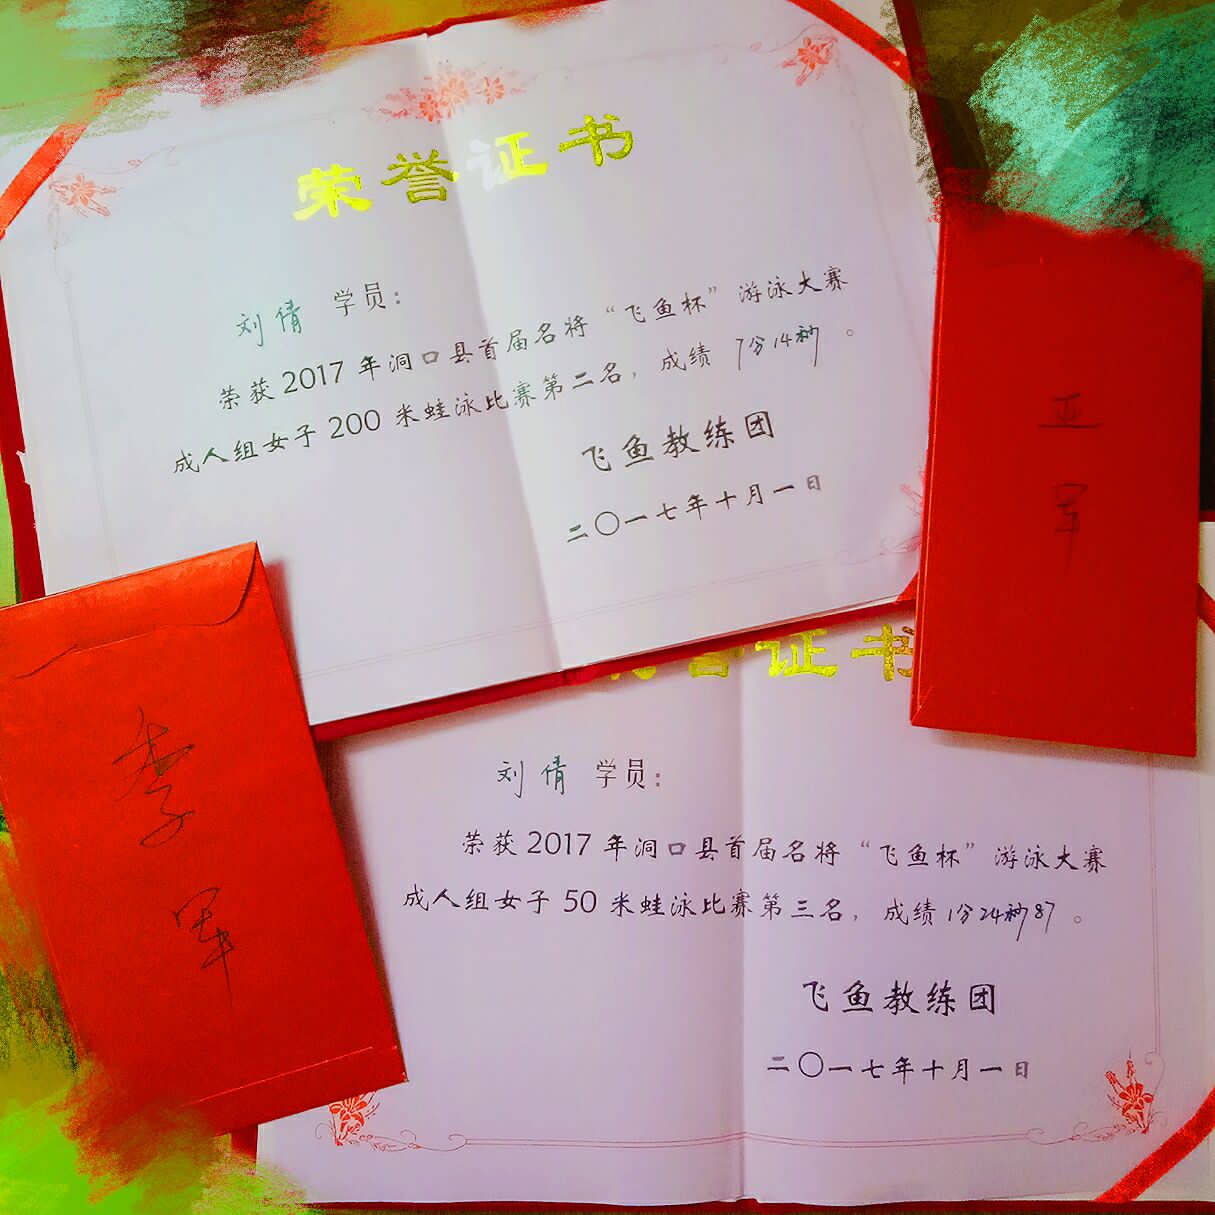 荣誉证书
刘倩 学员：
荣获2017年洞口县首届名将“飞鱼杯”游泳大赛
成人组女子200米蛙泳比赛第二名，成绩 7分14秒 。
飞鱼教练团
二〇一七年十月一日
亚
军
季
军
荣誉证书
刘倩 学员：
荣获2017年洞口县首届名将“飞鱼杯”游泳大赛
成人组女子50米蛙泳比赛第三名，成绩1分24秒87 。
飞鱼教练团
二〇一七年十月一日